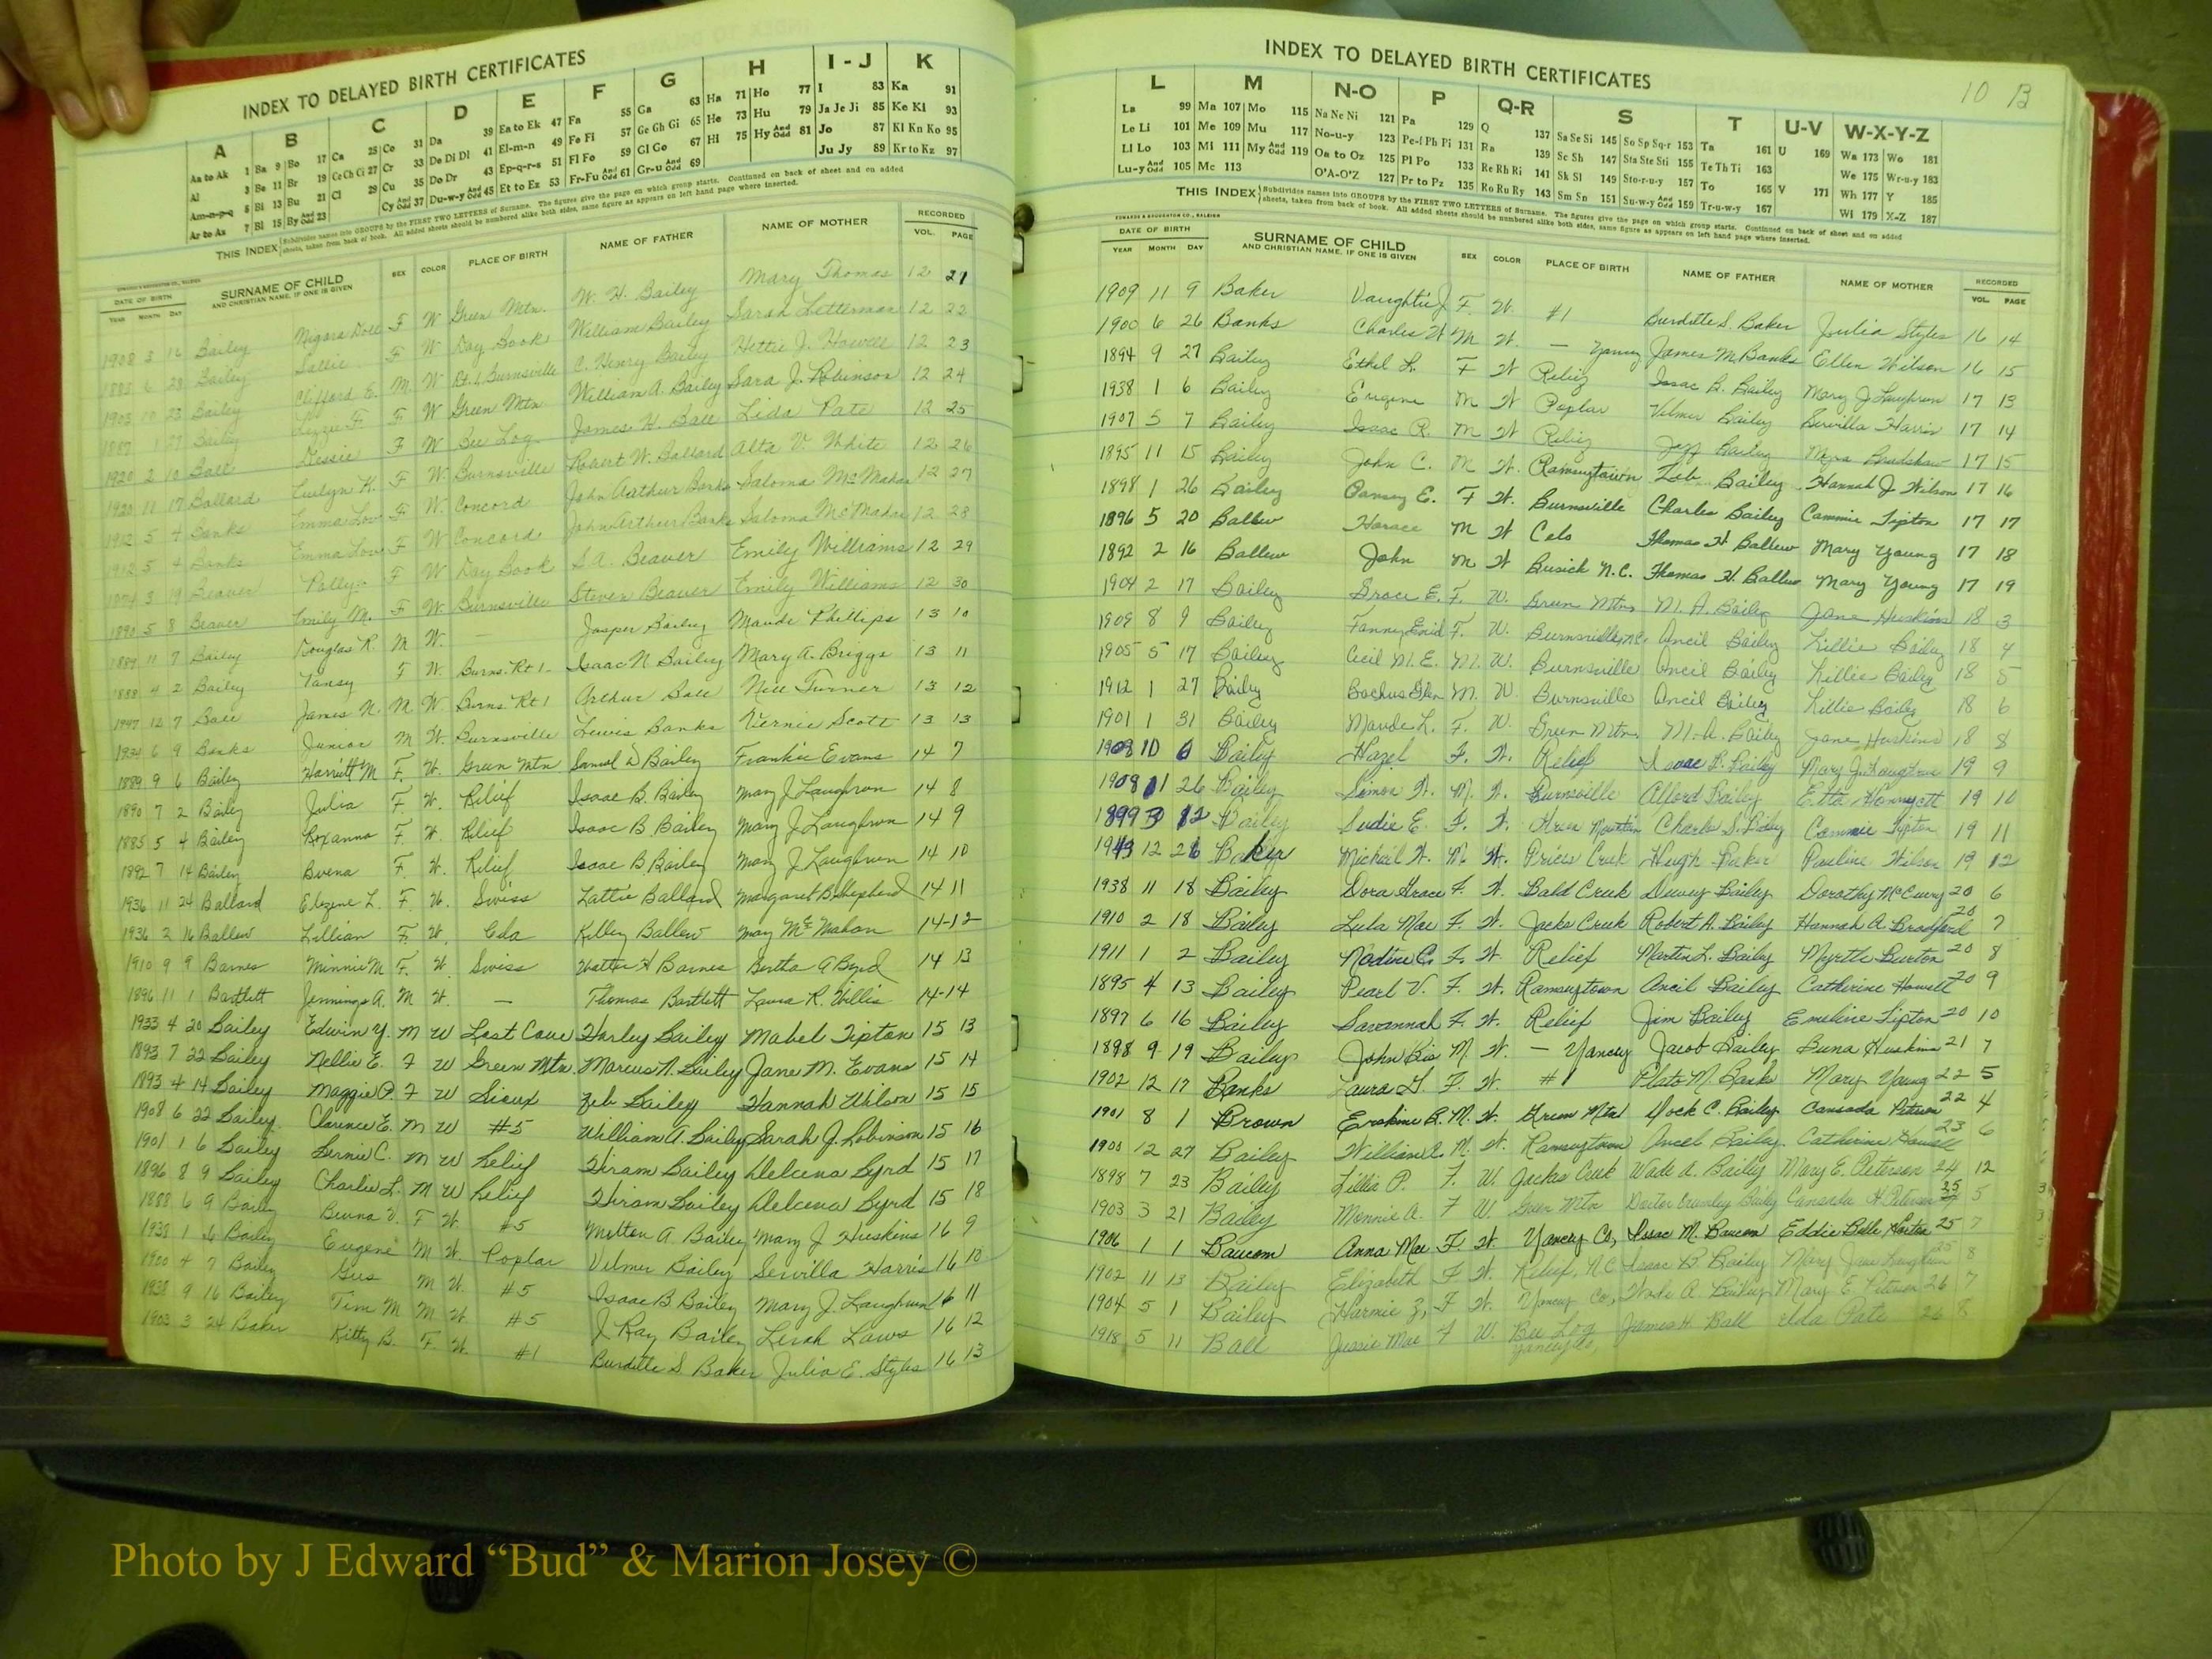 INDEX TO DELAYED BIRTH CERTIFICATES
A B C D E F G H I-J K
Aa to Ak 1 Ba 9 Bo 17 Ca 25 Co 31 Da 39 Ea to Ek 47 Fa 55 Ga 63 Ha 71 Ho 77 I 83 Ka 91
Al 3 Be 11 Br 19 Ce Ch Ci 27 Cr 33 De Di Dl 41 El-m-n 49 Fe Fi 57 Ge Gh Gi 65 He 73 Hu 79 Ja Je Ji 85 Ke Ki 93
Am-n-p-q 5 Bi 13 Bu 21 Cl 29 Cu 35 Do Dr 43 Ep-q-r-s 51 Fl Fo 59 Gl Go 67 Hi 75 Hy And Odd 81 Jo 87 Kl Kn Ko 95
Ar to Az 7 Bl 15 By And Odd 23 Cy And Odd 37 Du-w-y And Odd 45 Et to Ez 53 Fr-Fu And Odd 61 Gr-u And Odd 69 Ju Jy 89 Kr to Kz 97
THIS INDEX Subdivides names into GROUPS by the FIRST TWO LETTERS of Surname. The figures give the page on which group starts. Continued on back of sheet and on added
sheets, taken from back of book. All added sheets should be numbered alike both sides, same figure as appears on left hand page where inserted.
DATE OF BIRTH SURNAME OF CHILD SEX COLOR PLACE OF BIRTH NAME OF FATHER NAME OF MOTHER RECORDED
YEAR MONTH DAY AND CHRISTIAN NAME, IF ONE IS GIVEN VOL. PAGE
1908 3 16 Bailey F W Green Mtn. W. H. Bailey Mary Thomas 12 21
1885 6 28 Bailey Sallie F W Day Book William Bailey Sarah Letterman 12 22
1903 10 23 Bailey Clifford E. M. W Rt. 1 Burnsville C. Henry Bailey Hettie J. Howell 12 23
1887 1 27 Bailey Lizzie F. F W Green Mtn William A. Bailey Sara J. Robinson 12 24
1920 2 10 Ball Dessie F W Bee Log James H. Ball Lida Pate 12 25
1920 11 17 Ballard Evelyn H. F W. Burnsville Robert W. Ballard Alta V. White 12 26
1912 5 4 Banks Emma Lou F W. Concord John Arthur Banks Saloma McMahan 12 27
1912 5 4 Banks Emma Lou F W Concord John Arthur Banks Saloma McMahan 12 28
3 19 Beaver Polly F W Day Book S.A. Beaver Emily Williams 12 29
1890 5 8 Beaver Emily M. F W. Burnsville Steven Beaver Emily Williams 12 30
1889 11 7 Bailey Douglas R. M W. — Jasper Bailey Maude Phillips 13 10
1888 4 2 Bailey Tansy F W. Burns. Rt 1 - Isaac N Bailey Mary A. Briggs 13 11
12 7 Ball James N. M. W Burns. Rt 1 Arthur Ball Nell Turner 13 12
1934 6 9 Banks Junior M W. Burnsville Lewis Banks Vernie Scott 13 13
1889 9 6 Bailey Harriett M F. W. Green Mtn Samuel D Bailey Frankie Evans 14 7
1890 7 2 Bailey Julia F. W. Relief Isaac B. Bailey Mary J Laughrun 14 8
1885 5 4 Bailey Roxanna F. W. Relief Isaac B Bailey Mary J. Laughrun 14 9
1892 7 14 Bailey Buena F. W. Relief Isaac B Bailey Mary J Laughrun 14 10
1936 11 24 Ballard L. F. W. Swiss Lattie Ballard Margaret B Shepherd 14 11
1936 2 16 Ballew Lillian F. W. Kelley Ballew Mary McMahan 14-12
1910 9 9 Barnes Minnie M F. W. Swiss Walter H Barnes Bertha A Byrd 14 13
1896 11 1 Bartlett Jennings A. M W. — Thomas Bartlett Laura R. Willis 14-14
1933 4 20 Bailey Edwin Y. M W Lost Cove Harley Bailey Mabel Tipton 15 13
1893 7 22 Bailey Nellie E. F W Green Mtn. Marcus N. Bailey Jane M. Evans 15 14
1893 4 14 Bailey Maggie P. F W Sioux Zeb Bailey Hannah Wilson 15 15
1908 6 22 Bailey Clarence E. M W #5 William A. Bailey Sarah J. Robinson 15 16
1901 1 6 Bailey Bernie C. M W Relief Hiram Bailey Delcena Byrd 15 17
1896 8 9 Bailey Charlie L. M W Relief Hiram Bailey Delcena Byrd 15 18
1888 6 9 Bailey Buna V. F W. #5 Milton A. Bailey Mary J Huskins 16 9
1938 1 6 Bailey Eugene M W. Poplar Velmer Bailey Servilla Harris 16 10
1900 4 7 Bailey Gus M W. #5 Isaac B Bailey Mary J. Laughrun 16 11
1938 9 16 Bailey Tim M M W #5 J. Ray Bailey Leiah Laws 16 12
1903 3 24 Baker Kitty B. F. W. #1 Burdette S Baker Julia E. Styles 16 13
INDEX TO DELAYED BIRTH CERTIFICATES 10 B
L M N-O P Q-R S T U-V W-X-Y-Z
La 99 Ma 107 Mo 115 Na Ne Ni 121 Pa 129 Q 137 Sa Se Si 145 So Sp Sq-r 153 Ta 161 U 169 Wa 173 Wo 181
Le Li 101 Me 109 Mu 117 No-u-y 123 Pe-f Ph Pi 131 Ra 139 Sc Sh 147 Sta Ste Sti 155 Te Th Ti 163 We 175 Wr-u-y 183
Ll Lo 103 Mi 111 My And Odd 119 Oa to Oz 125 Pl Po 133 Re Rh Ri 141 Sk Sl 149 Sto-r-u-y 157 To 165 V 171 Wh 177 Y 185
Lu-y And Odd 105 Mc 113 O'A-O'Z 127 Pr to Pz 135 Ro Ru Ry 143 Sm Sn 151 Su-w-y And Odd 159 Tr-u-w-y 167 Wi 179 X-Z 187
THIS INDEX Subdivides names into GROUPS by the FIRST TWO LETTERS of Surname. The figures give the page on which group starts. Continued on back of sheet and on added
sheets, taken from back of book. All added sheets should be numbered alike both sides, same figure as appears on left hand page where inserted.
EDWARDS & BROUGHTON CO., RALEIGH
DATE OF BIRTH SURNAME OF CHILD SEX COLOR PLACE OF BIRTH NAME OF FATHER NAME OF MOTHER RECORDED
YEAR MONTH DAY AND CHRISTIAN NAME, IF ONE IS GIVEN VOL. PAGE
1909 11 9 Baker Vaughtie J. F. W. #1 Burdette S. Baker Julia Styles 16 14
1900 6 26 Banks Charles W M W. — Yancey James M. Banks Ellen Wilson 16 15
1894 9 27 Bailey Ethel L. F W Relief Isaac B. Bailey Mary J Laughrun 17 13
1938 1 6 Bailey Eugene M W Poplar Velmer Bailey Servilla Harris 17 14
1907 5 7 Bailey Isaac R. M W Relief Jeff Bailey Bradshaw 17 15
1895 11 15 Bailey John C. M W. Ramseytown Zeb Bailey Hannah J Wilson 17 16
1898 1 26 Bailey Pansey E. F W. Burnsville Charles Bailey Cammie Tipton 17 17
1896 5 20 Ballew Horace M W Celo Thomas H Ballew Mary Young 17 18
1892 2 16 Ballew John M W Busick N.C. Thomas H. Ballew Mary Young 17 19
1904 2 17 Bailey Grace E. F. W. Green Mtn M. A. Bailey Jane Huskins 18 3
1908 8 9 Bailey Fanny Enid F. W. Burnsville, N.C. Ancil Bailey Lillie Bailey 18 4
1905 5 17 Bailey Cecil M. E. M. W. Burnsville Ancil Bailey Lillie Bailey 18 5
1912 1 27 Bailey Backus Glen M. W. Burnsville Ancil Bailey Lillie Bailey 18 6
1901 1 31 Bailey Maude L. F. W. Green Mtn. M. A. Bailey Jane Huskins 18 8
1908 10 6 Bailey Hazel F. W. Relief Isaac B. Bailey Mary J. Laughrun 19 9
1908 11 26 Bailey Simon W. M. W. Burnsville Alford Bailey Etta Honeycutt 19 10
1899 3 12 Bailey Sudie E. F. W. Green Mountain Charles S. Bailey Cammie Tipton 19 11
1943 12 26 Baker Michael W. M. W. Prices Creek Hugh Baker Pauline Wilson 19 12
1938 11 18 Bailey Dora Grace F. W. Bald Creek Dewey Bailey Dorothy McCurry 20 6
1910 2 18 Bailey Lula Mae F. W. Jacks Creek Robert A. Bailey Hannah A. Bradford 20 7
1911 1 2 Bailey Nadine C. F. W. Relief Martin L. Bailey Myrtle Burton 20 8
1895 4 13 Bailey Pearl V. F. W. Ramseytown Ancil Bailey Catherine Howell 20 9
1897 6 16 Bailey Savannah F. W. Relief Jim Bailey Emeline Tipton 20 10
1898 9 19 Bailey John M. W. — Yancey Jacob Bailey Buna Huskins 21 7
1902 12 17 Banks Laura G. F. W. #1 Plato M. Banks Mary Young 22 5
1901 8 1 Brown Erskine B. M. W. Green Mtn Dock C. Bailey Cansada Peterson 22 4
1900 12 27 Bailey William A. M. W. Ramseytown Ancel Bailey Catherine Howell 23 6
1898 7 23 Bailey Lillie P. F. W. Jacks Creek Wade A. Bailey Mary E. Peterson 24 12
1903 3 21 Bailey Minnie A. F W. Green Mtn Doctor Crumley Bailey Cansada H. Peterson 25 5
1906 1 1 Baucom Anna Mae F. W. Yancey Co, Isaac M. Baucom Eddie Belle Horton 25 7
1902 11 13 Bailey Elizabeth F W. Relief, NC Isaac B Bailey Mary Jane Laughrun 25 8
1904 5 1 Bailey Harmie Z. F W. Yancey Co, Wade A. Bailey Mary E Peterson 26 7
1918 5 11 Ball Jessie Mae F W. Bee Log Yancey Co, James H. Ball Elda Pate 26 8
Photo by J Edward “Bud” & Marion Josey ©